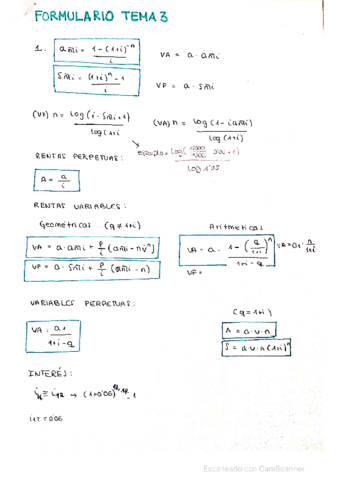 FORMULARIO TEMA 3
1. a_n̅|i = 1-(1+i)^-n / i
VA = a · a_n̅|i
S_n̅|i = (1+i)^n - 1 / i
VF = a · S_n̅|i
(VF) n = log(i · S_n̅|i + 1) / log(1+i
(VA) n = log(1 - i a_n̅|i) / log(1+i)
RENTAS PERPETUAS:
log 1'05
A = a / i
RENTAS VARIABLES:
Geométricas (q ≠ 1+i)
Aritméticas
VA = a · a_n̅|i + P/i (a_n̅|i - n v^n)
VA = a · 1 - (q/1+i)^n / 1+i - q
VA = a · n/1+i
VF = a · S_n̅|i + P/i (S_n̅|i - n)
VF =
VARIABLES PERPETUAS:
(q = 1+i)
VA = a1 / 1+i-q
A = a · v · n
S = a · v · n (1+i)^n
INTERÉS:
≡ i12 → (1+0'06) - 1
i12 = 0'06
Escaneado con CamScanner